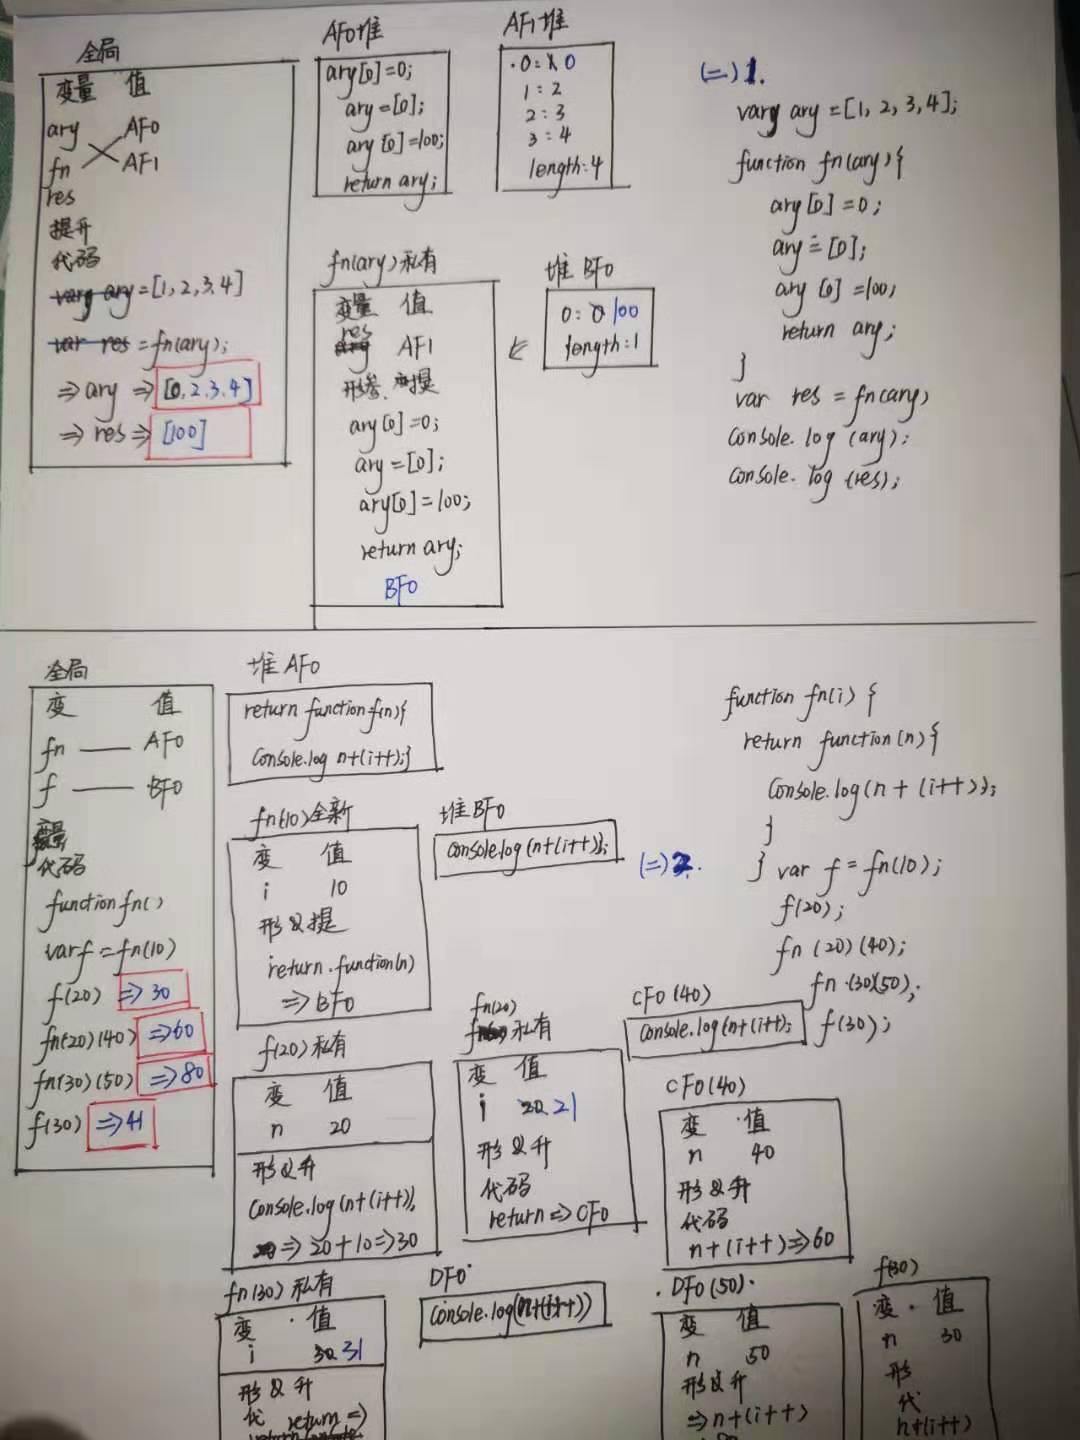 全局
变量 值
ary AF0
fn AF1
res
提升
代码
var ary = [1,2,3,4]
var res = fn(ary);
⇒ ary ⇒ [0,2,3,4]
⇒ res ⇒ [100]
AF0堆
ary[0]=0;
ary=[0];
ary[0]=100;
return ary;
AF1堆
0:1 0
1:2
2:3
3:4
length:4
fn(ary)私有
变量 值
res
ary AF1
形参、变提
ary[0]=0;
ary=[0];
ary[0]=100;
return ary;
BF0
堆 BF0
0: 0 100
length:1
(二) 1.
var ary = [1, 2, 3, 4];
function fn(ary){
ary[0]=0;
ary=[0];
ary[0]=100;
return ary;
}
var res = fn(ary)
console.log (ary);
console.log (res);
全局
变 值
fn —— AF0
f —— BF0
变量
代码
function fn()
var f = fn(10)
f(20) ⇒30
fn(20)(40) ⇒60
fn(30)(50) ⇒80
f(30) ⇒41
堆 AF0
return function f(n){
Console.log n+(i++);}
fn(10)全新
变 值
i 10
形&提
return function(n)
⇒ BF0
堆 BF0
console.log(n+(i++));
(二) 2.
function fn(i) {
return function(n){
Console.log(n + (i++));
}
} var f = fn(10);
f(20);
fn (20)(40);
fn (30)(50);
f(30);
f(20)私有
变 值
n 20
形&升
Console.log(n+(i++));
⇒ 20+10⇒30
fn(20)
私有
变 值
i 20 21
形&升
代码
return ⇒ CF0
CF0(40)
Console.log(n+(i++);
CF0(40)
变 值
n 40
形&升
代码
n+(i++)⇒60
fn(30)私有
变 值
i 30 31
形&升
代 return ⇒
DF0
Console.log(n+(i++))
DF0(50)
变 值
n 50
形&升
⇒n+(i++)
f(30)
变 值
n 30
形
代
n+(i++)